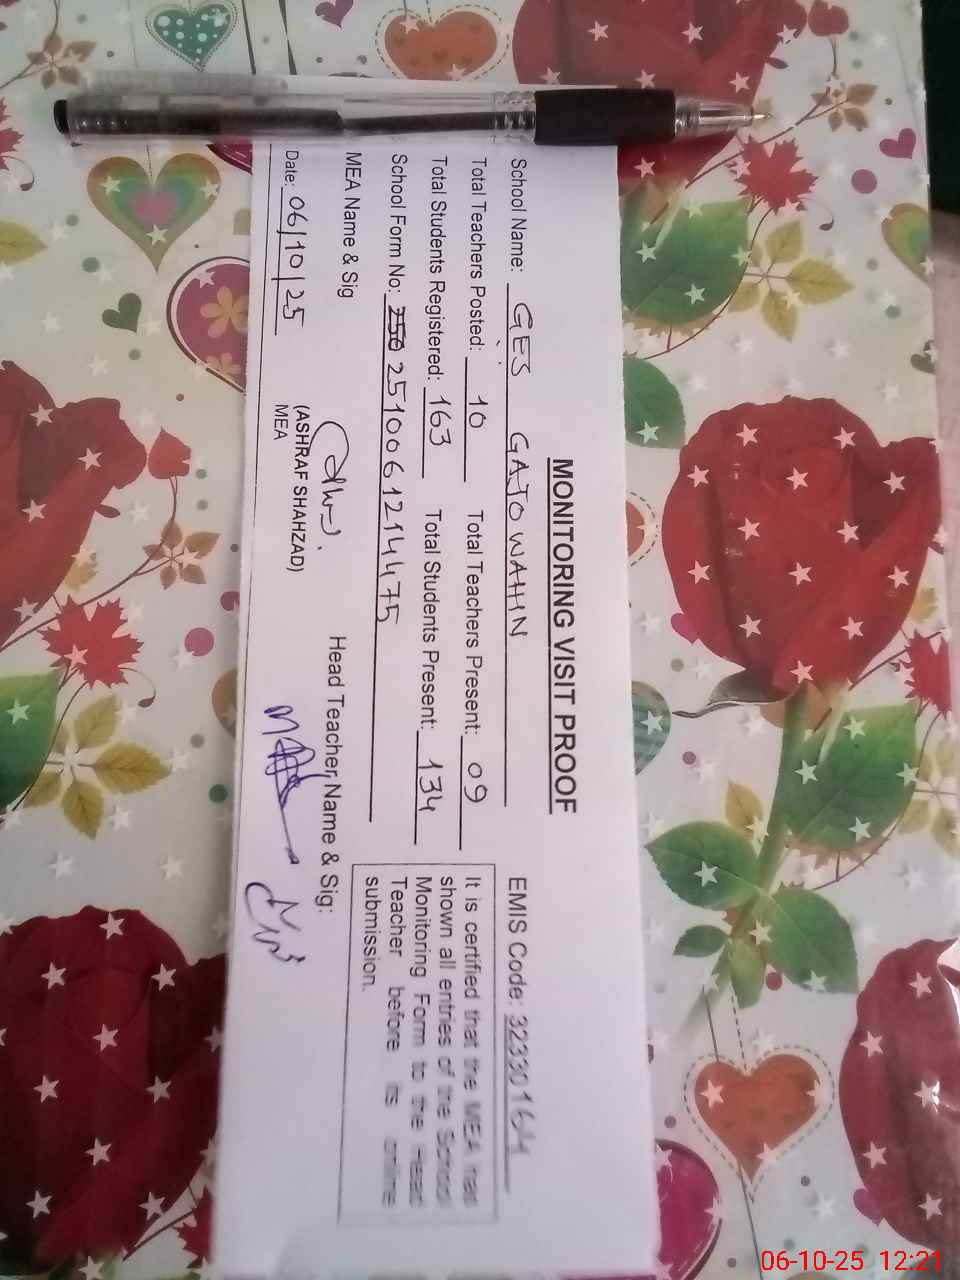 MONITORING VISIT PROOF
School Name: GES GATO WAHIN EMIS Code: 32330164
Total Teachers Posted: 10 Total Teachers Present: 09
Total Students Registered: 163 Total Students Present: 134
School Form No: 2510061214475
It is certified that the MEA has
shown all entries of the School
Monitoring Form to the Head
Teacher before its online
submission.
MEA Name & Sig
Head Teacher, Name & Sig:
(ASHRAF SHAHZAD)
MEA
Date: 06/10/25
06-10-25 12:21